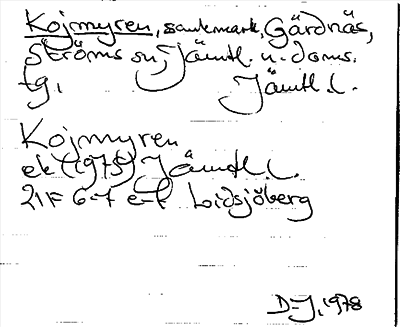 Kojmyren, sankmark, Gärdnäs,
Ströms sn, Jämtl. n. doms.
tg, Jämtl. l.
Kojmyren
ek (1975) Jämtl. l.
21F 6-7 e-f Lidsjöberg
D-J, 1978